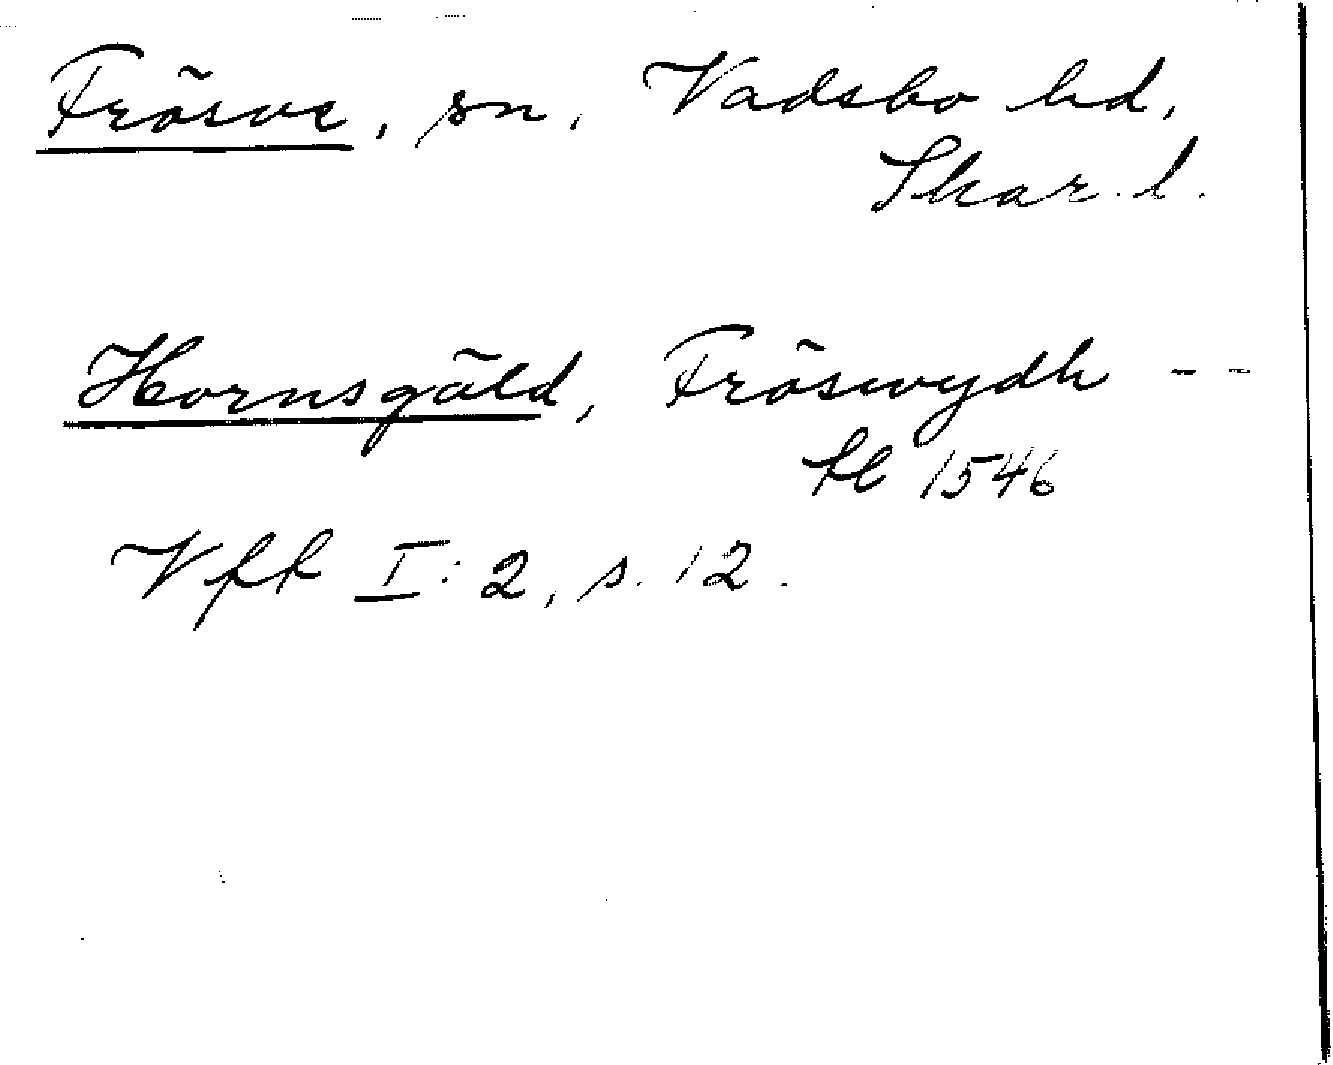 Frösve, sn, Vadsbo hd,
Skar. l.
Hornsgäld, Fröswydh - -
fl 1546
Vff I:2, s. 12.